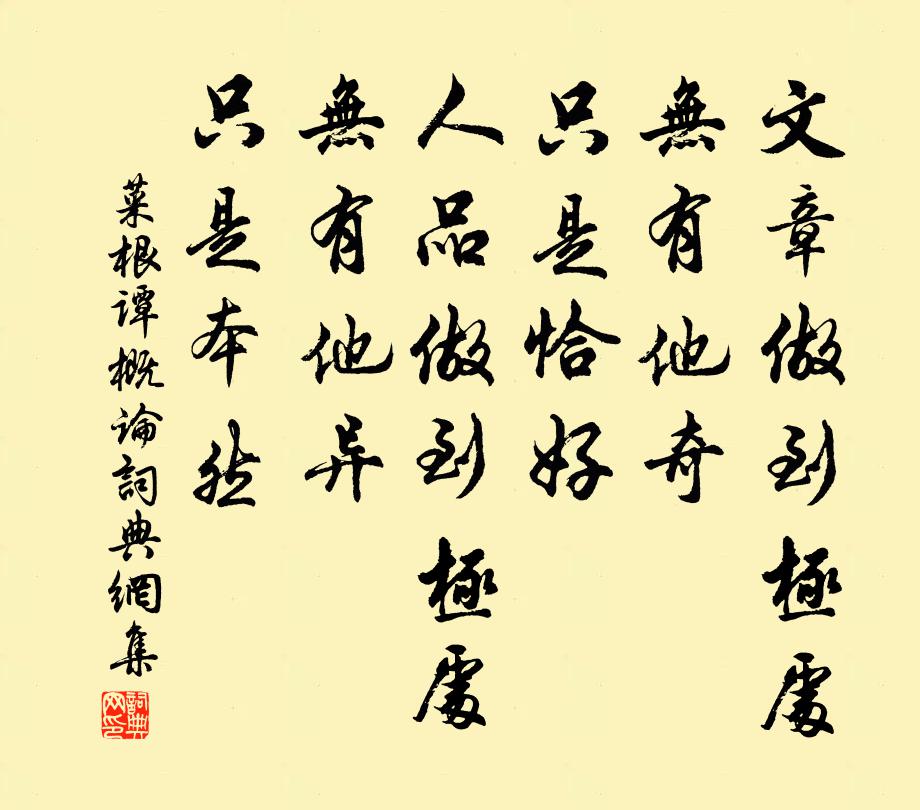 文章做到極處
無有他奇
只是恰好
人品做到極處
無有他异
只是本然
菜根譚概論詞典網集
詞典網印